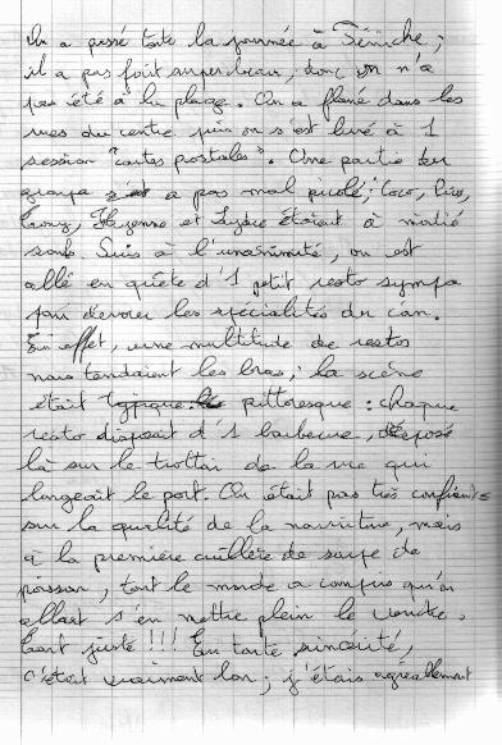 On a passé toute la journée à Péniche ;
il a pas fait super beau, donc on n'a
pas été à la plage. On a flané dans les
rues du centre puis on s'est livré à 1
session "cartes postales". Une partie du
groupe a pas mal picolé ; Coco, Rico,
et Lydie étaient à moitié
souls. Suis à l'unanimité, on est
allé en quête d'1 petit resto sympa
pour dévorer les spécialités du coin.
En effet, une multitude de restos
nous tendaient les bras ; la scène
était pittoresque : chaque
resto disposait d'1 barbecue, déposé
là sur le trottoir de la rue qui
longeait le port. On était pas très confiants
sur la qualité de la nourriture, mais
à la première cuillère de soupe de
poisson, tout le monde a compris qu'on
allait s'en mettre plein le ventre.
Tout juste !!! En toute sincérité,
c'était vraiment bon ; j'étais agréablement